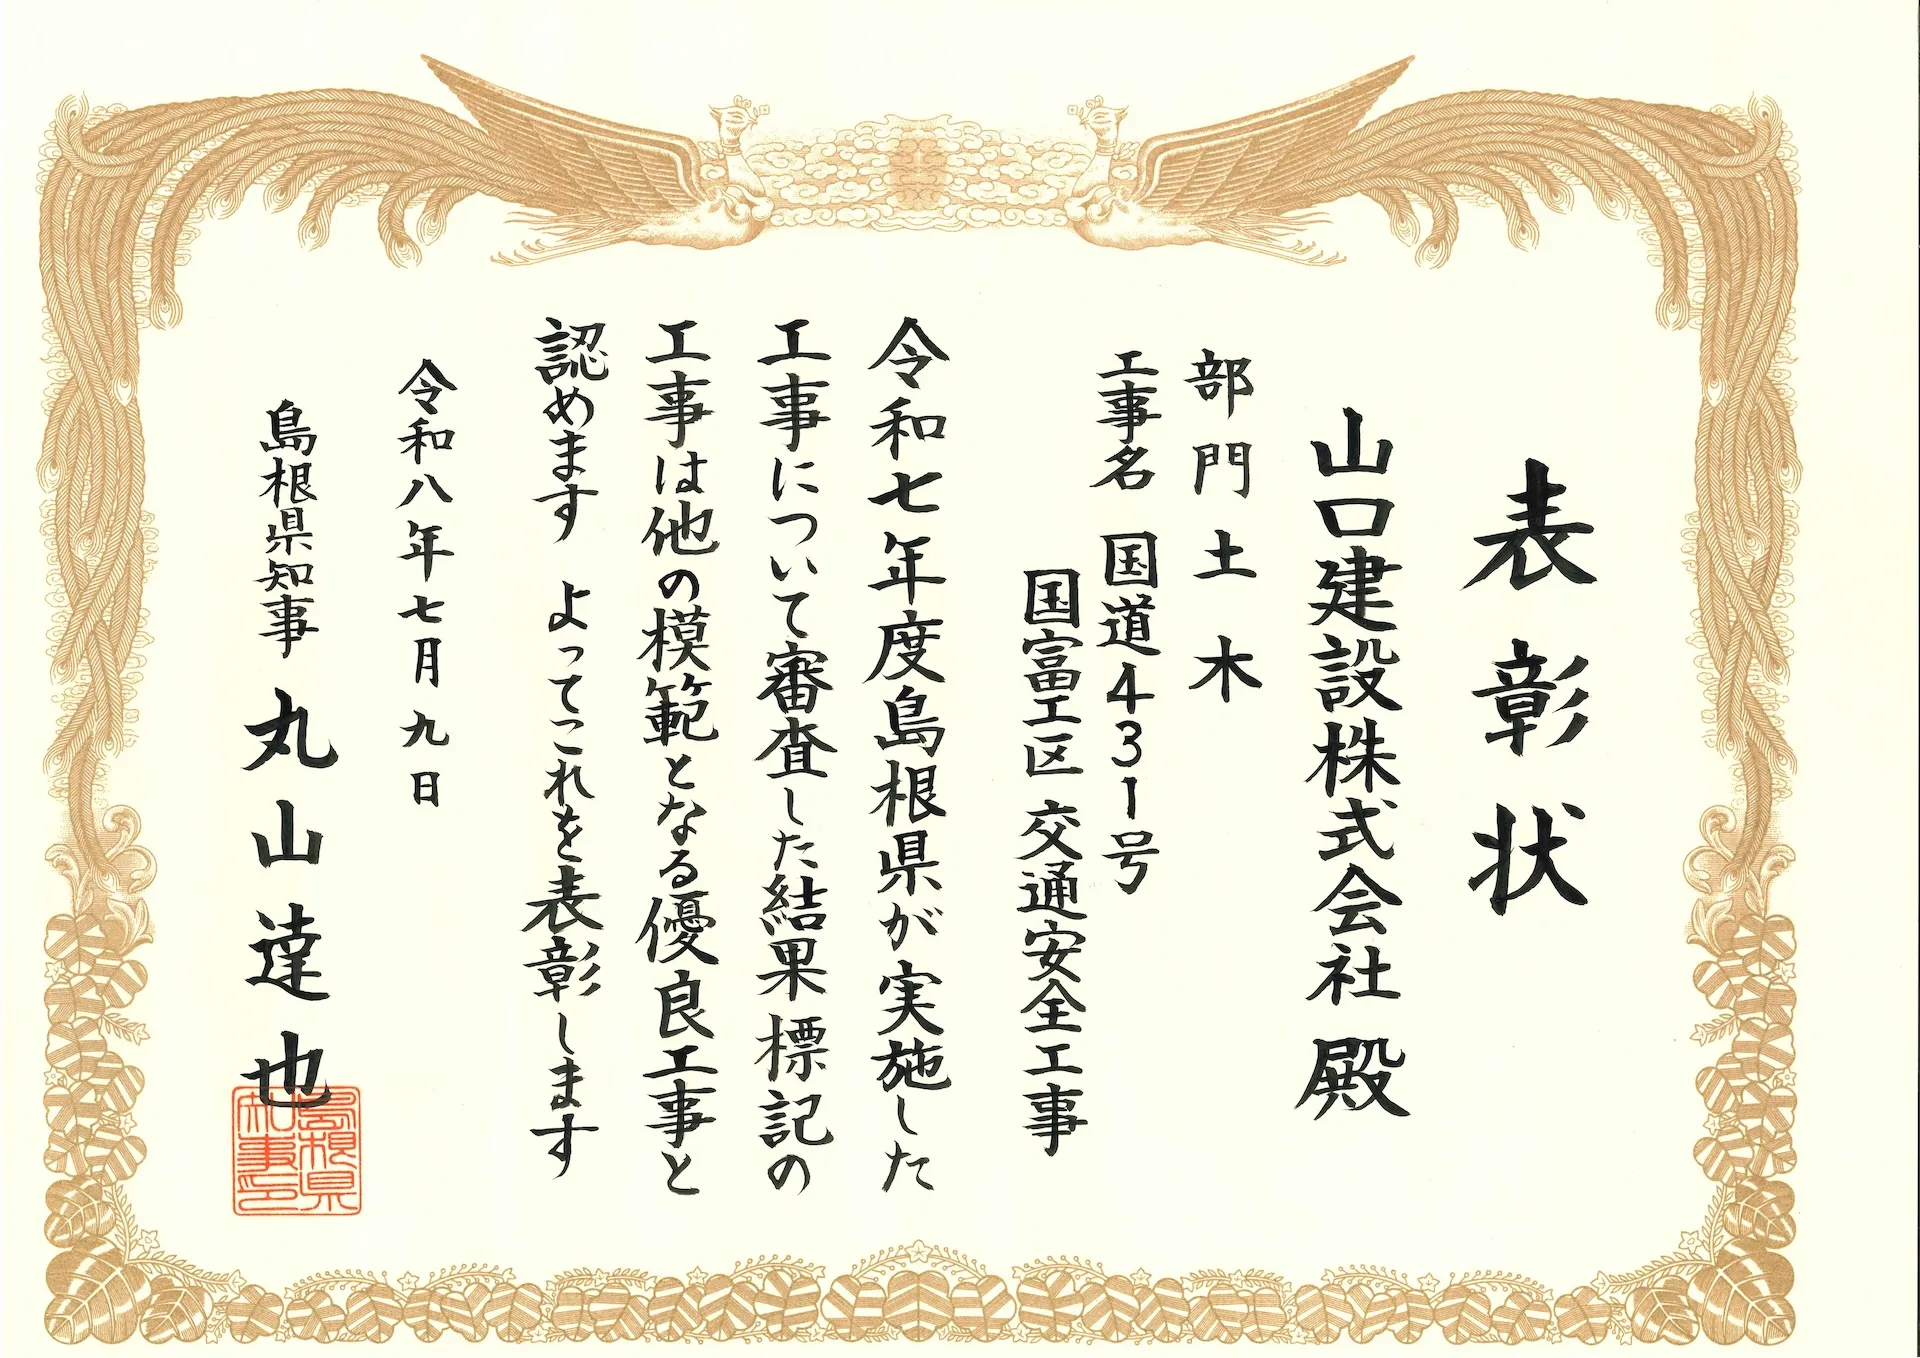 表彰状
山口建設株式会社 殿
部門 土木
工事名 国道431号
国富工区 交通安全工事
令和七年度島根県が実施した
工事について審査した結果 標記の
工事は他の模範となる優良工事と
認めます よってこれを表彰します
令和八年七月九日
島根県知事 丸山達也
島根県知事印